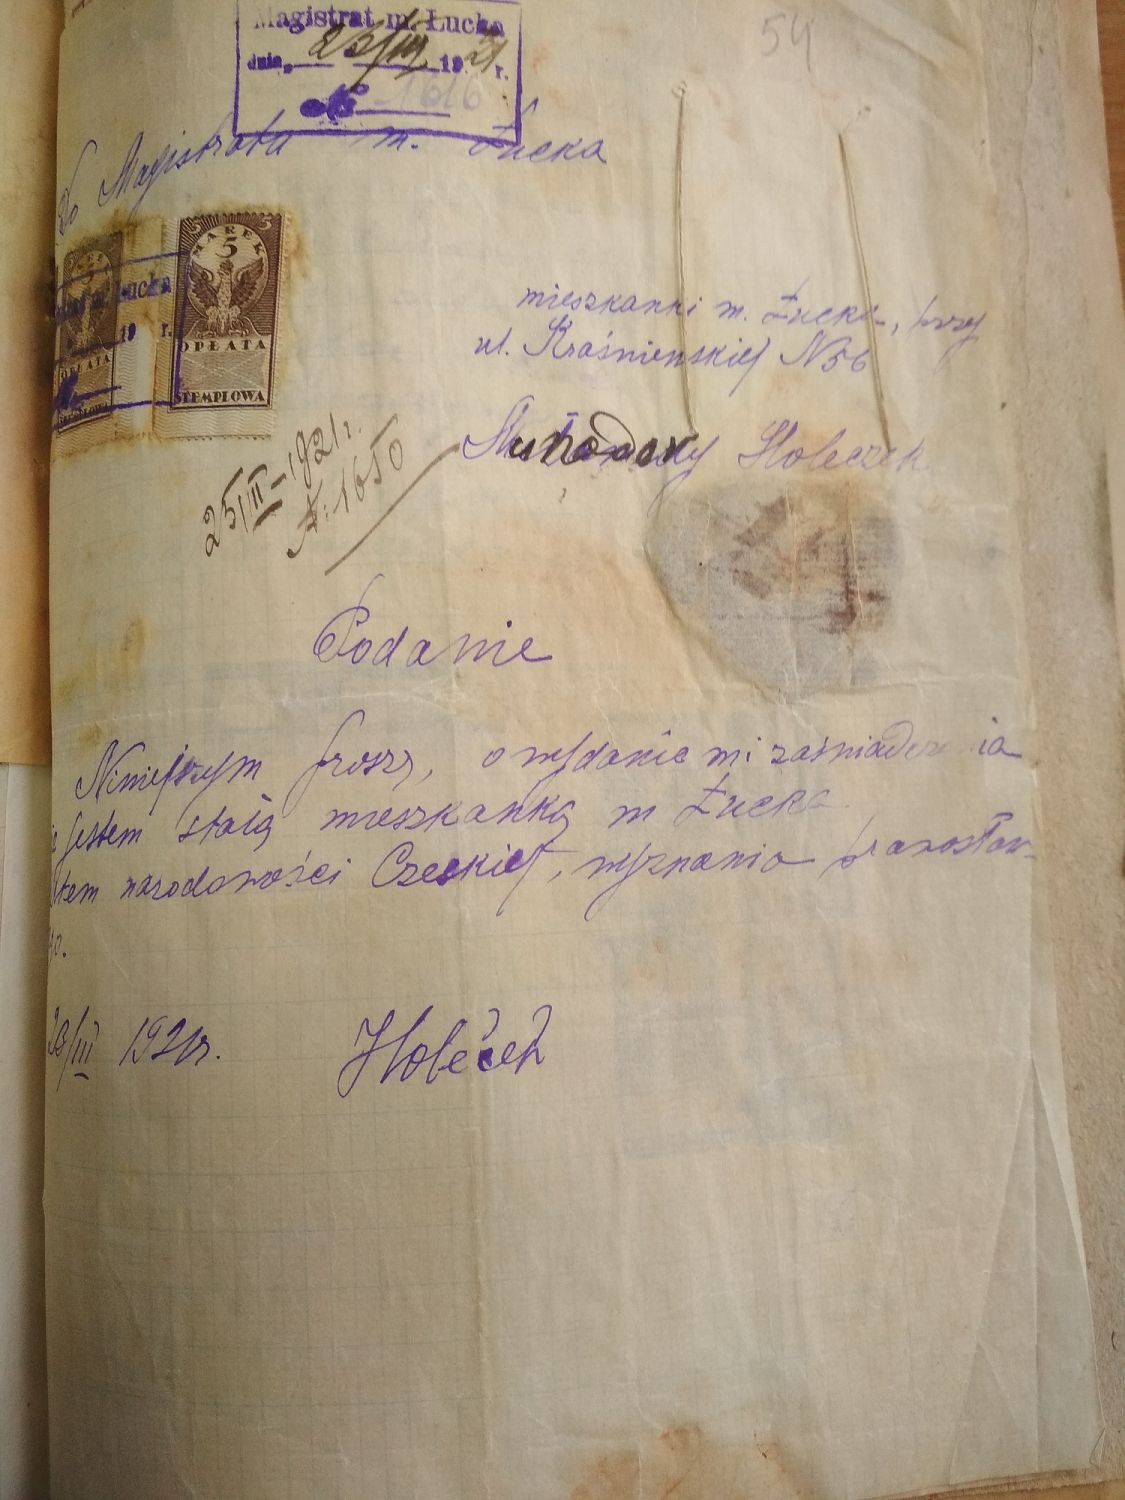 54
Magistrat m. Łucka
dnia 25/III 1921 r.
№ 1616
Do Magistratu m. Łucka
MAREK
5
OPŁATA
STEMPLOWA
5
OPŁATA
m. Łucka
19 r.
mieszkanki m. Łucka, przy
ul. Kraśnienskiej N 56
Holeczek
25/III-1921 r.
№: 1650
Podanie
Niniejszym proszę, o wydanie mi zaświadczenia
jestem stałą mieszkanką m Łucka
narodowości Czeskiej, wyznania prawosław-
/III 1921 r.
Holeček